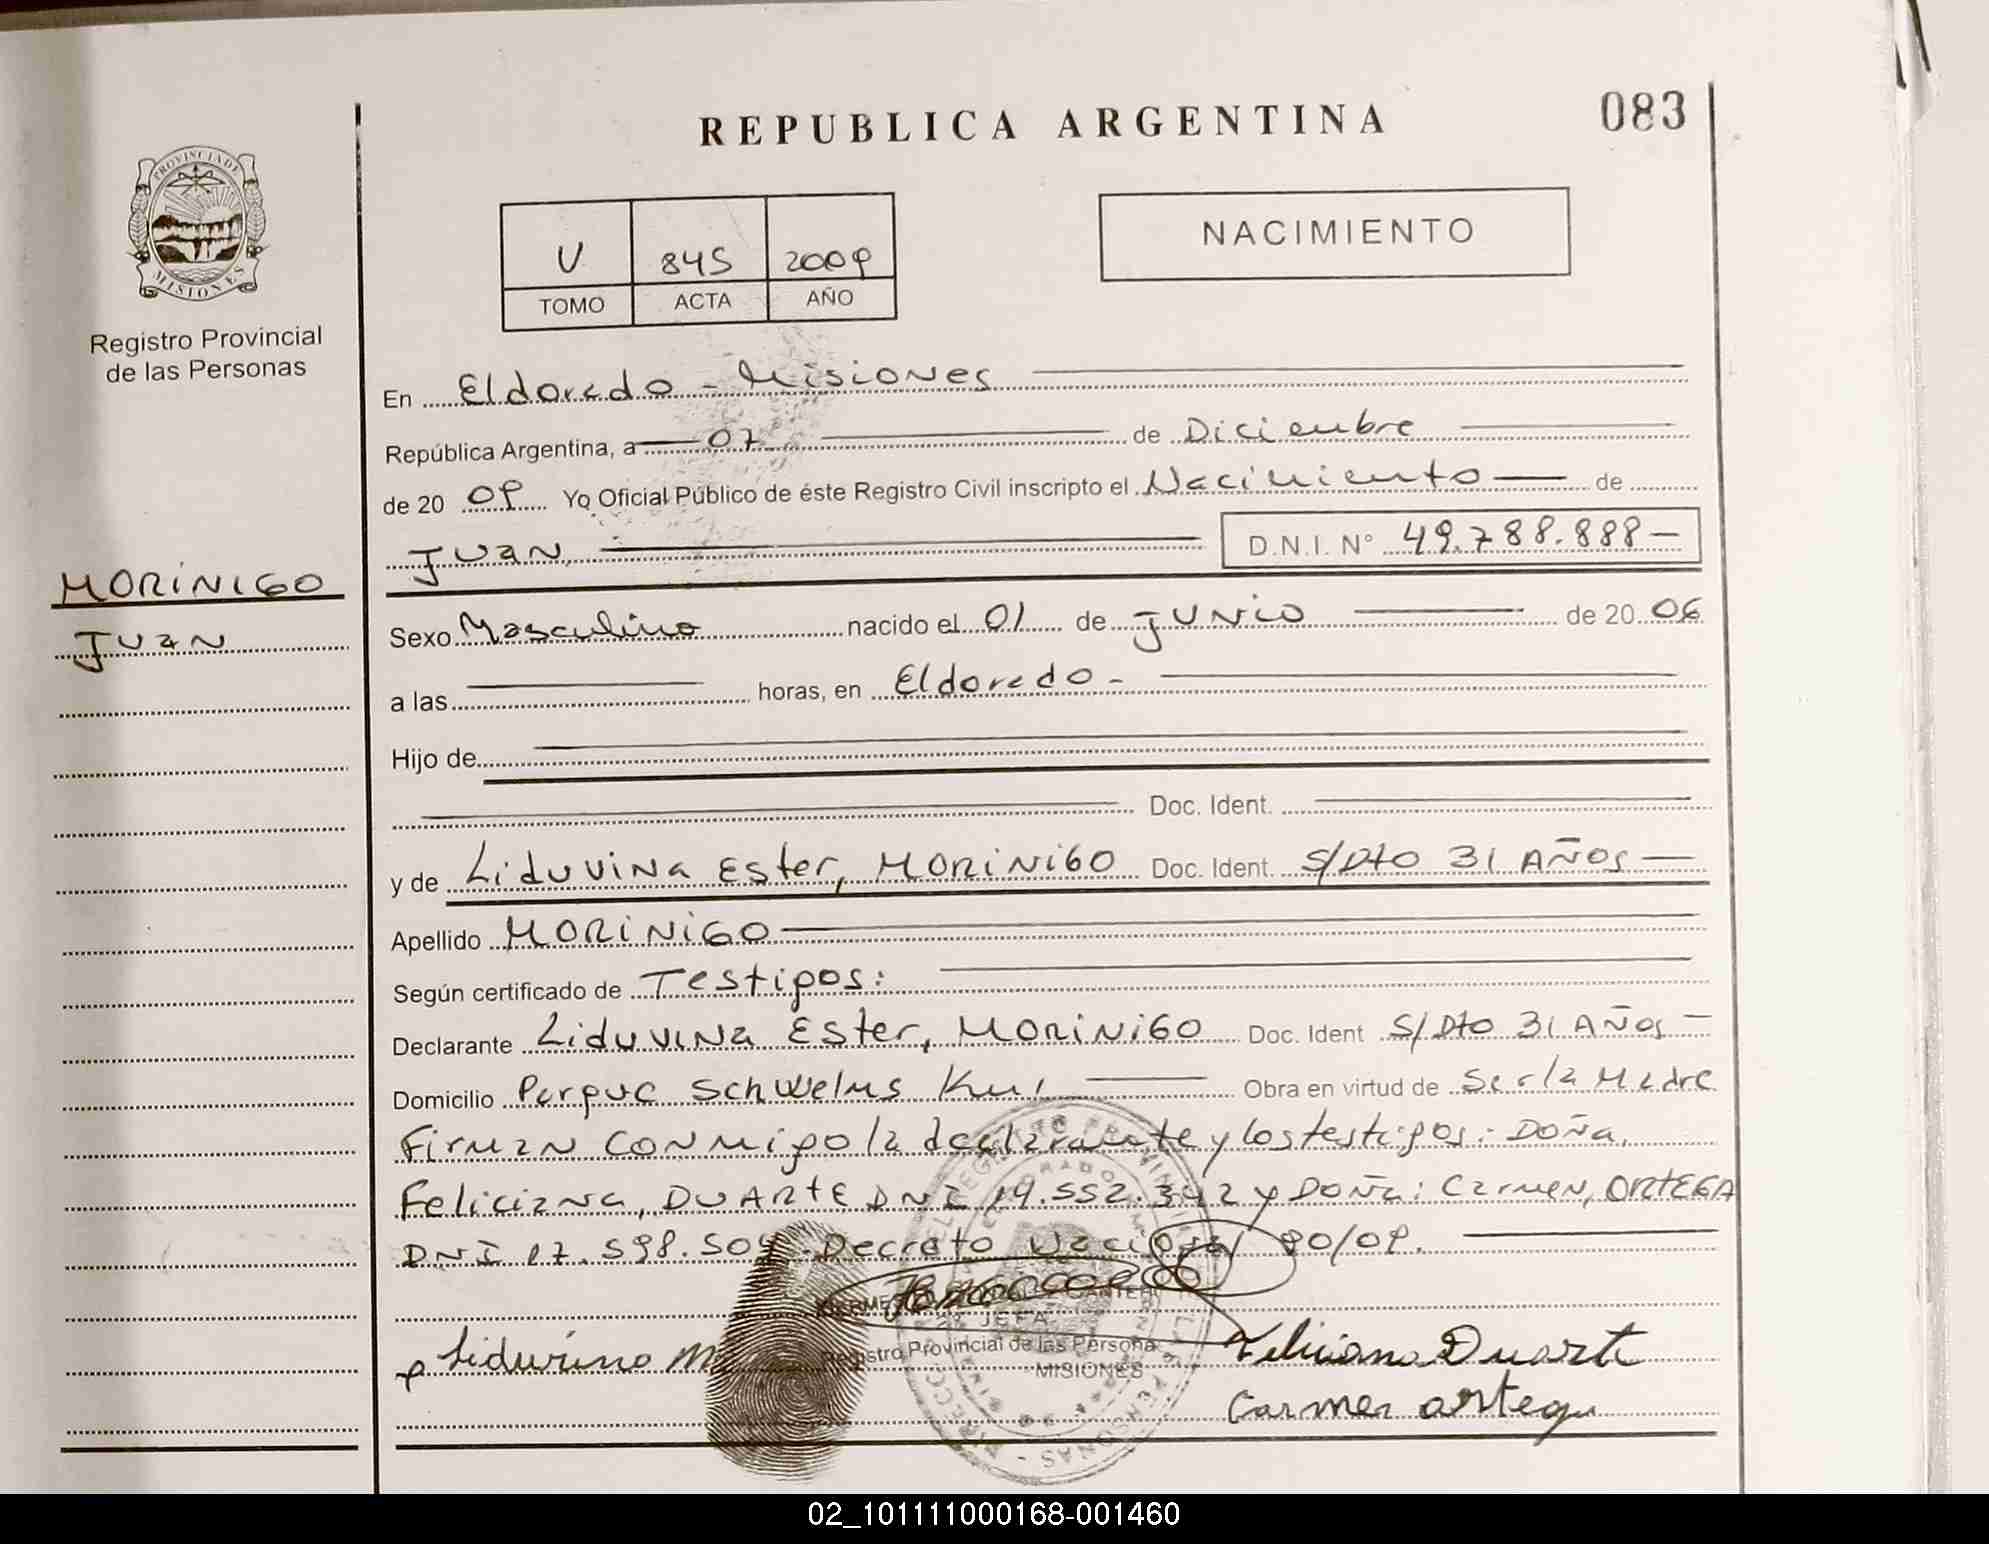 REPUBLICA ARGENTINA
083
PROVINCIA DE
MISIONES
Registro Provincial
de las Personas
V 845 2009
TOMO ACTA AÑO
NACIMIENTO
En Eldorado - Misiones
República Argentina, a 07 de Diciembre
de 20 09 Yo Oficial Público de éste Registro Civil inscripto el Nacimiento de
Juan D.N.I. N° 49.788.888-
MORINIGO
Juan
Sexo Masculino nacido el 01 de Junio de 20 06
a las horas, en Eldorado -
Hijo de
Doc. Ident.
y de Liduvina Ester, MORINIGO Doc. Ident. S/Dto 31 AÑOS
Apellido MORINIGO
Según certificado de Testigos:
Declarante Liduvina Ester, MORINIGO Doc. Ident S/Dto 31 AÑOS
Domicilio Parque Schwelms Obra en virtud de Ser la Madre
Firman conmigo la declarante y los testigos: Doña
Feliciana, DUARTE DNI 14.552.342 y Doña: Carmen, ORTEGA
DNI 17.598.504. Decreto Nacional 90/09.
JEFA
Registro Provincial de las Persona
MISIONES
Feliciana Duarte
Carmen Ortega
02_101111000168-001460